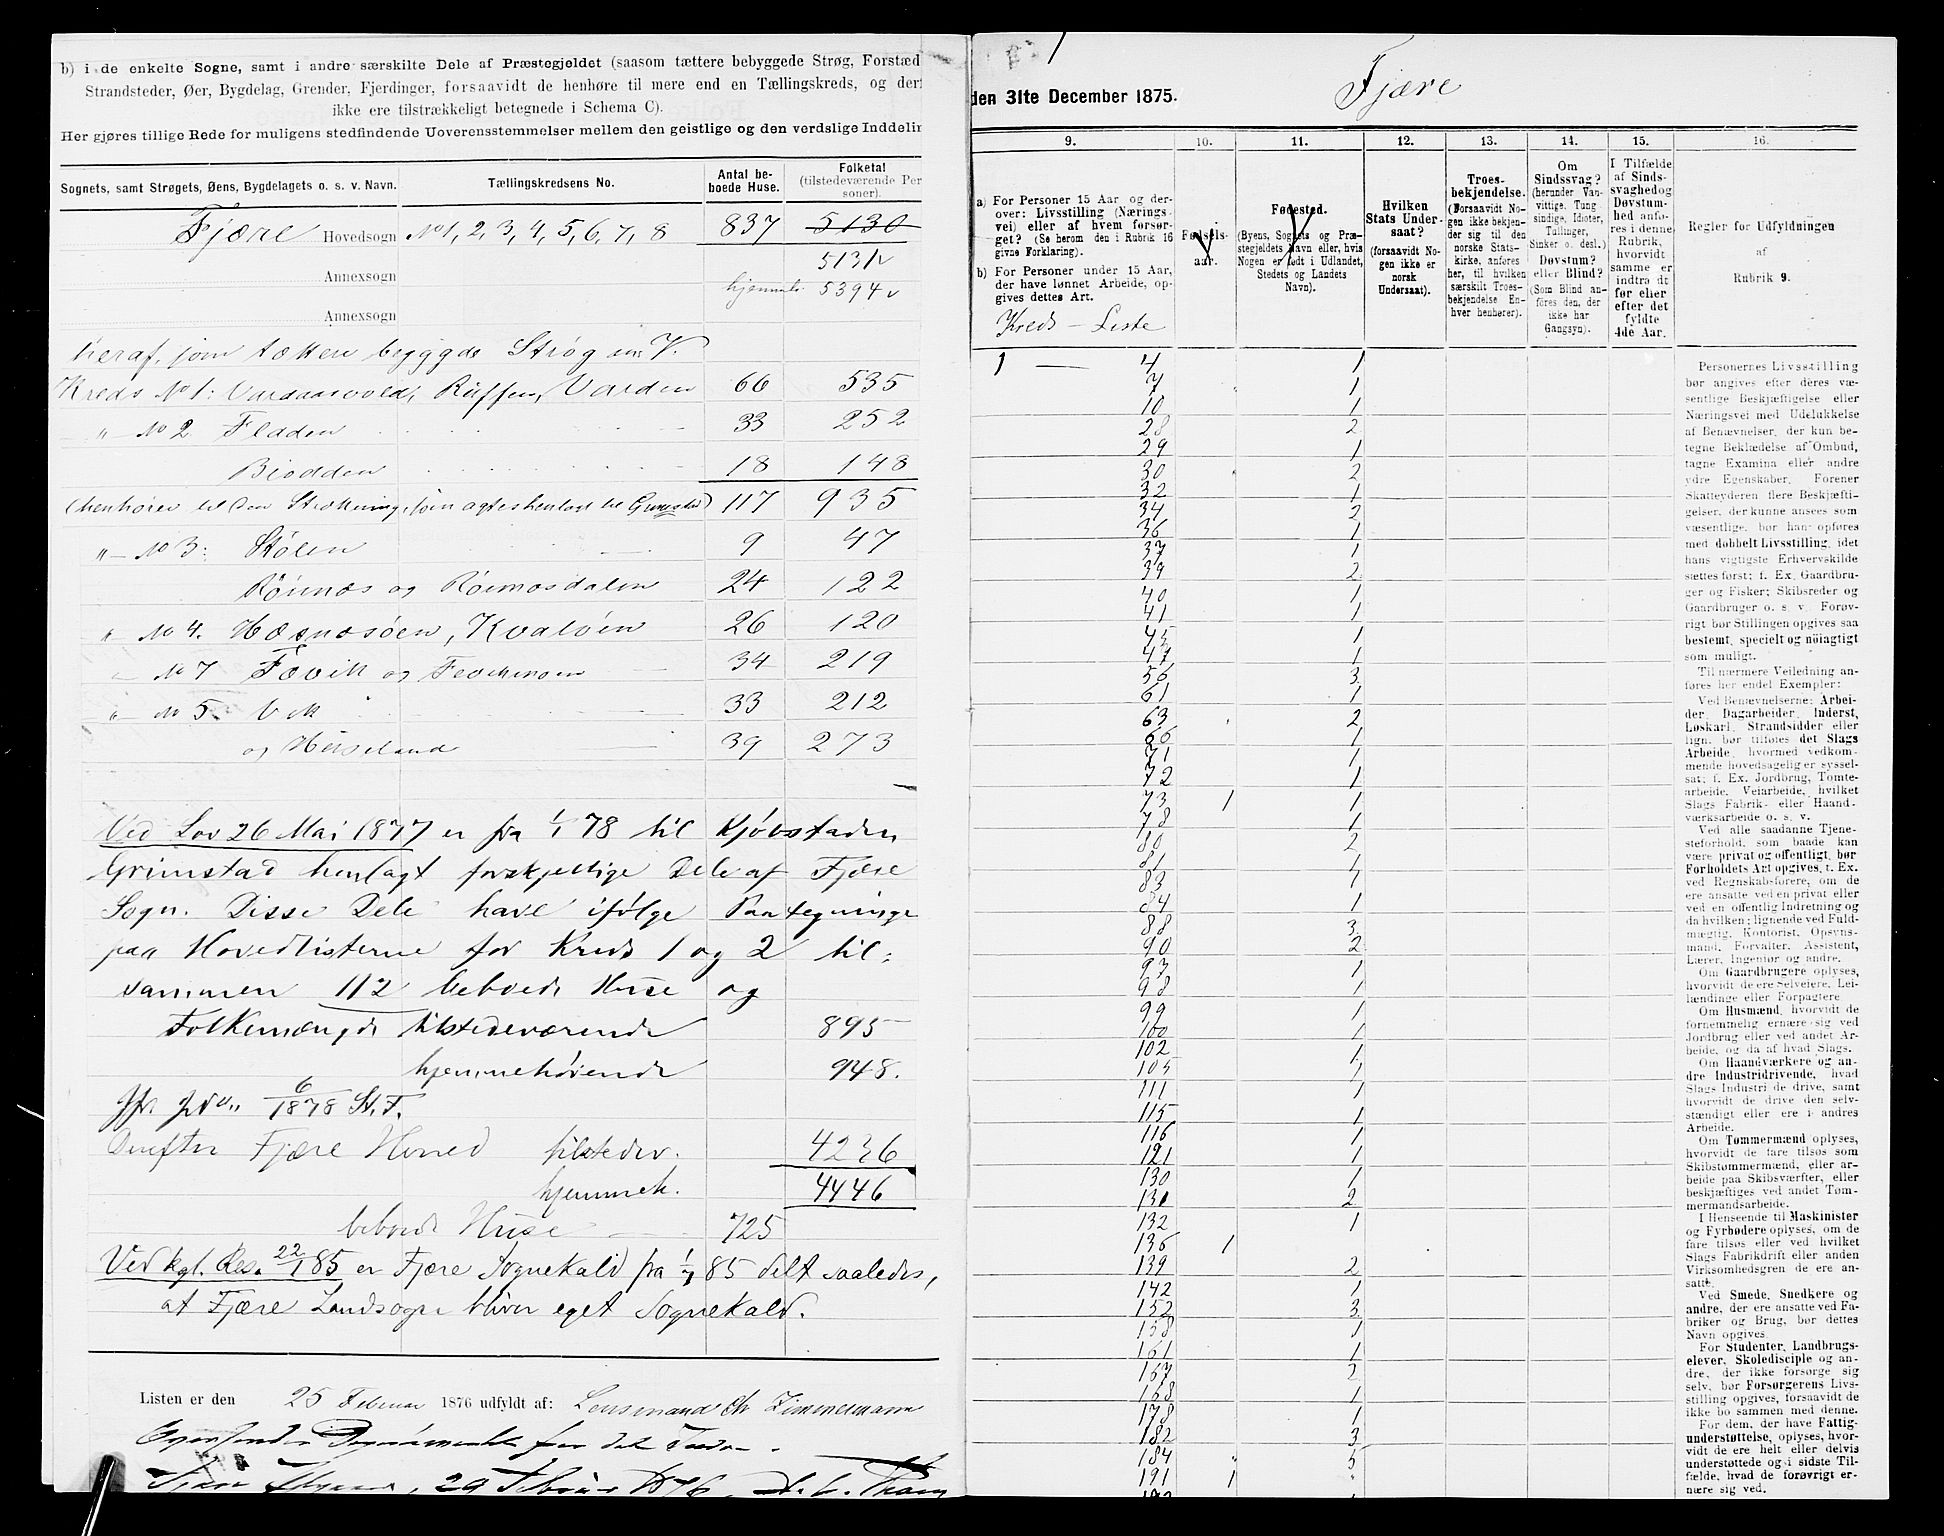 b) i de enkelte Sogne, samt i andre særskilte Dele af Præstegjeldet (saasom tættere bebyggede Strøg, Forstæd
Strandsteder, Øer, Bygdelag, Grender, Fjerdinger, forsaavidt de henhøre til mere end en Tællingskreds, og der
ikke ere tilstrækkeligt betegnede i Schema C).
Her gjøres tillige Rede for muligens stedfindende Uoverensstemmelser mellem den geistlige og den verdslige Inddelin
Sognets, samt Strøgets, Øens, Bygdelagets o. s. v. Navn. Tællingskredsens No. Antal beboede Huse. Folketal (tilstedeværende Personer).
Fjære Hovedsogn No 1, 2, 3, 4, 5, 6, 7, 8 837 5130
5131
Annexsogn hjemmeh. 5394
Annexsogn
heraf, som tættere bebyggde Strøg
Kreds No 1: Vardaasvold, Ruffen, Varden 66 535
" - No 2 Fladen 33 252
Biodden 18 148
117 935
" - No 3: Stølen 9 47
Røinæs og Røinæsdalen 24 122
" No 4. Hæsnæsøen, Kvaløen 26 120
" No 7 Fævik og 34 219
" - No 5. Vik 33 212
og 39 273
Ved Lov 26 Mai 1877 er fra 1/1 78 til Kjøbstaden
Grimstad henlagt forskjellige Dele af Fjære
Sogn. Disse Dele have ifølge Paategninge
paa Hovedlisterne for Kreds 1 og 2 til-
sammen 112 beboede Huse og
Folkemængde tilstedeværende 895
hjemmehørende 948.
6/1878 St. F.
Derefter Fjære Herred tilstedev. 4236
hjemmeh. 4446
beboede Huse 725
Ved kgl. Res. 22/1 85 er Fjære Sognekald fra 1/7 85 delt saaledes,
at Fjære Landsogn bliver eget Sognekald.
Listen er den 25 Februar 1876 udfyldt af: Lensmand Chr Zimmermann
1876
den 31te December 1875.
Fjære
9. 10. 11. 12. 13. 14. 15. 16.
a) For Personer 15 Aar og derover: Livsstilling (Næringsvei) eller af hvem forsørget? (Se herom den i Rubrik 16 givne Forklaring).
b) For Personer under 15 Aar, der have lønnet Arbeide, opgives dettes Art.
Fødselsaar.
Fødested.
(Byens, Sognets og Præstegjeldets Navn eller, hvis Nogen er født i Udlandet, Stedets og Landets Navn).
Hvilken Stats Undersaat?
(forsaavidt Nogen ikke er norsk Undersaat).
Troesbekjendelse.
(Forsaavidt Nogen ikke bekjender sig til den norske Statskirke, anføres her, til hvilken særskilt Troesbekjendelse Enhver henhører).
Om Sindssvag?
(herunder Vanvittige, Tungsindige, Idioter, Tullinger, Sinker o. desl.)
Døvstum? eller Blind?
(Som Blind anføres den, der ikke har Gangsyn).
I Tilfælde af Sindssvaghed og Døvstumhed anføres i denne Rubrik, hvorvidt samme er indtraadt før eller efter det fyldte 4de Aar.
Regler for Udfyldningen
af
Rubrik 9.
Kreds - Liste
1 — 4 1
7 1
10 1
28 2
29 1
30 2
32 1
34 2
36 1
37 1
39 2
40 1
41 1
45 1
47 1
56 3
61 1
63 2
66 1
71 1
72 1
73 1 1
78 1
80 2
81 1
83 1
84 1
88 3
90 2
93 1
98 1
99 1
100 1
102 1
105 1
111 1
115 1
116 1
121 1
130 1
131 2
132 1
136 1
139 2
142 1
152 3
158 1
161 1
167 2
168 1
178 1
182 3
184 5
191 1
Personernes Livsstilling
bør angives efter deres væ-
sentlige Beskjæftigelse eller
Næringsvei med Udelukkelse
af Benævnelser, der kun be-
tegne Beklædelse af Ombud,
tagne Examina eller andre
ydre Egenskaber. Forener
Skatteyderen flere Beskjæfti-
gelser, der kunne ansees som
væsentlige, bør han opføres
med dobbelt Livsstilling, idet
hans vigtigste Erhvervskilde
sættes først; f. Ex. Gaardbru-
ger og Fisker; Skibsreder og
Gaardbruger o. s. v. Forøv-
rigt bør Stillingen opgives saa
bestemt, specielt og nøiagtigt
som muligt.
Til nærmere Veiledning an-
føres her endel Exempler:
Ved Benævnelserne: Arbei-
der, Dagarbeider, Inderst,
Løskarl, Strandsidder eller
lign. bør tilføres det Slags
Arbeide, hvormed vedkom-
mende hovedsagelig er syssel-
sat; f. Ex. Jordbrug, Tomte-
arbeide, Veiarbeide, hvilket
Slags Fabrik- eller Haand-
værksarbeide o. s. v.
Ved alle saadanne Tjene-
steforhold, som baade kan
være privat og offentligt, bør
Forholdets Art opgives, t. Ex.
ved Regnskabsførere, om de
ere ansatte ved en privat eller
ved en offentlig Indretning og
da hvilken; lignende ved Fuld-
mægtig, Kontorist, Opsyns-
mand, Forvalter, Assistent,
Lærer, Ingeniør og andre.
Om Gaardbrugere oplyses,
hvorvidt de ere Selveiere, Lei-
lændinge eller Forpagtere.
Om Husmænd, hvorvidt de
fornemmelig ernære sig ved
Jordbrug eller ved andet Ar-
beide, og da af hvad Slags.
Om Haandværkere og an-
dre Industridrivende, hvad
Slags Industri de drive, samt
hvorvidt de drive den selv-
stændigt eller ere i andres
Arbeide.
Om Tømmermænd oplyses,
hvorvidt de fare tilsøs som
Skibstømmermænd, eller ar-
beide paa Skibsværfter, eller
beskjæftiges ved andet Tøm-
mermandsarbeide.
I Henseende til Maskinister
og Fyrbødere oplyses, om de
fare tilsøs eller ved hvilket
Slags Fabrikdrift eller anden
Virksomhedsgren de ere an-
satte.
Ved Smede, Snedkere og
andre, der ere ansatte ved Fa-
briker og Brug, bør dettes
Navn opgives.
For Studenter, Landbrugs-
elever, Skoledisciple og an-
dre, der ikke forsørge sig
selv, bør Forsørgerens Livs-
stilling opgives, forsaavidt de
ikke bo sammen med denne.
For dem, der have Fattig-
understøttelse, oplyses, hvor-
vidt de ere helt eller delvis
understøttede og i sidste Til-
fælde, hvad de forøvrigt er-
nære sig ved.